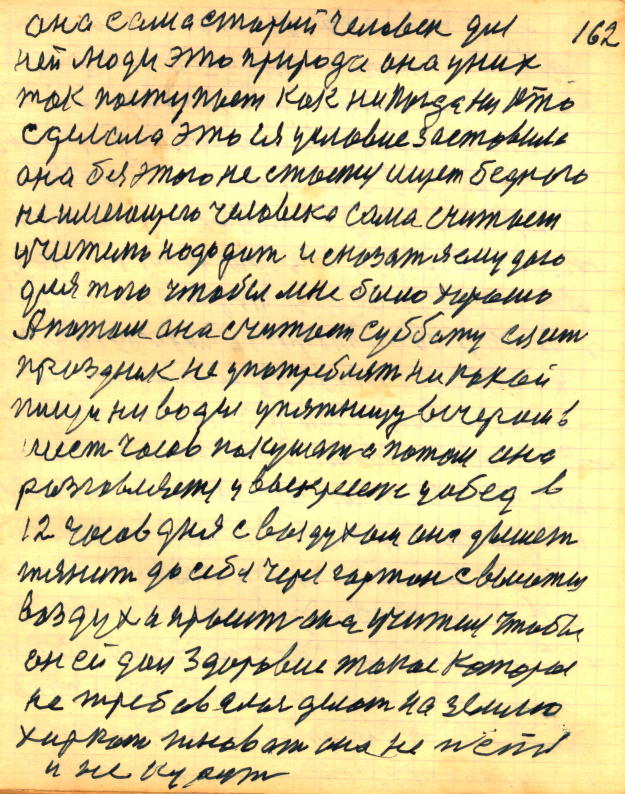 она сама старый человек для 162
ней люди это природа она у них
так поступает как никогда ни кто
сделала это ея условие заставила
она без этого не стоет ищет бедного
не имеющего человека сама считает
учитель надо дат и сказат я ему даю
для того чтобы мне было хорошо
А потом она считает субботу свят
праздник не употреблят ни какой
пищи ни воды у пятницу вечером в
шест часов покушат а потом она
у воскресене у обед в
12 часов дня с воздухом она дышет
тянит до себя через гортан с высоты
воздух а просит она учителя чтобы
он ей дал здоровие такое которое
не требовалося делат на землю
харкат плюват она не пёть
и не курит